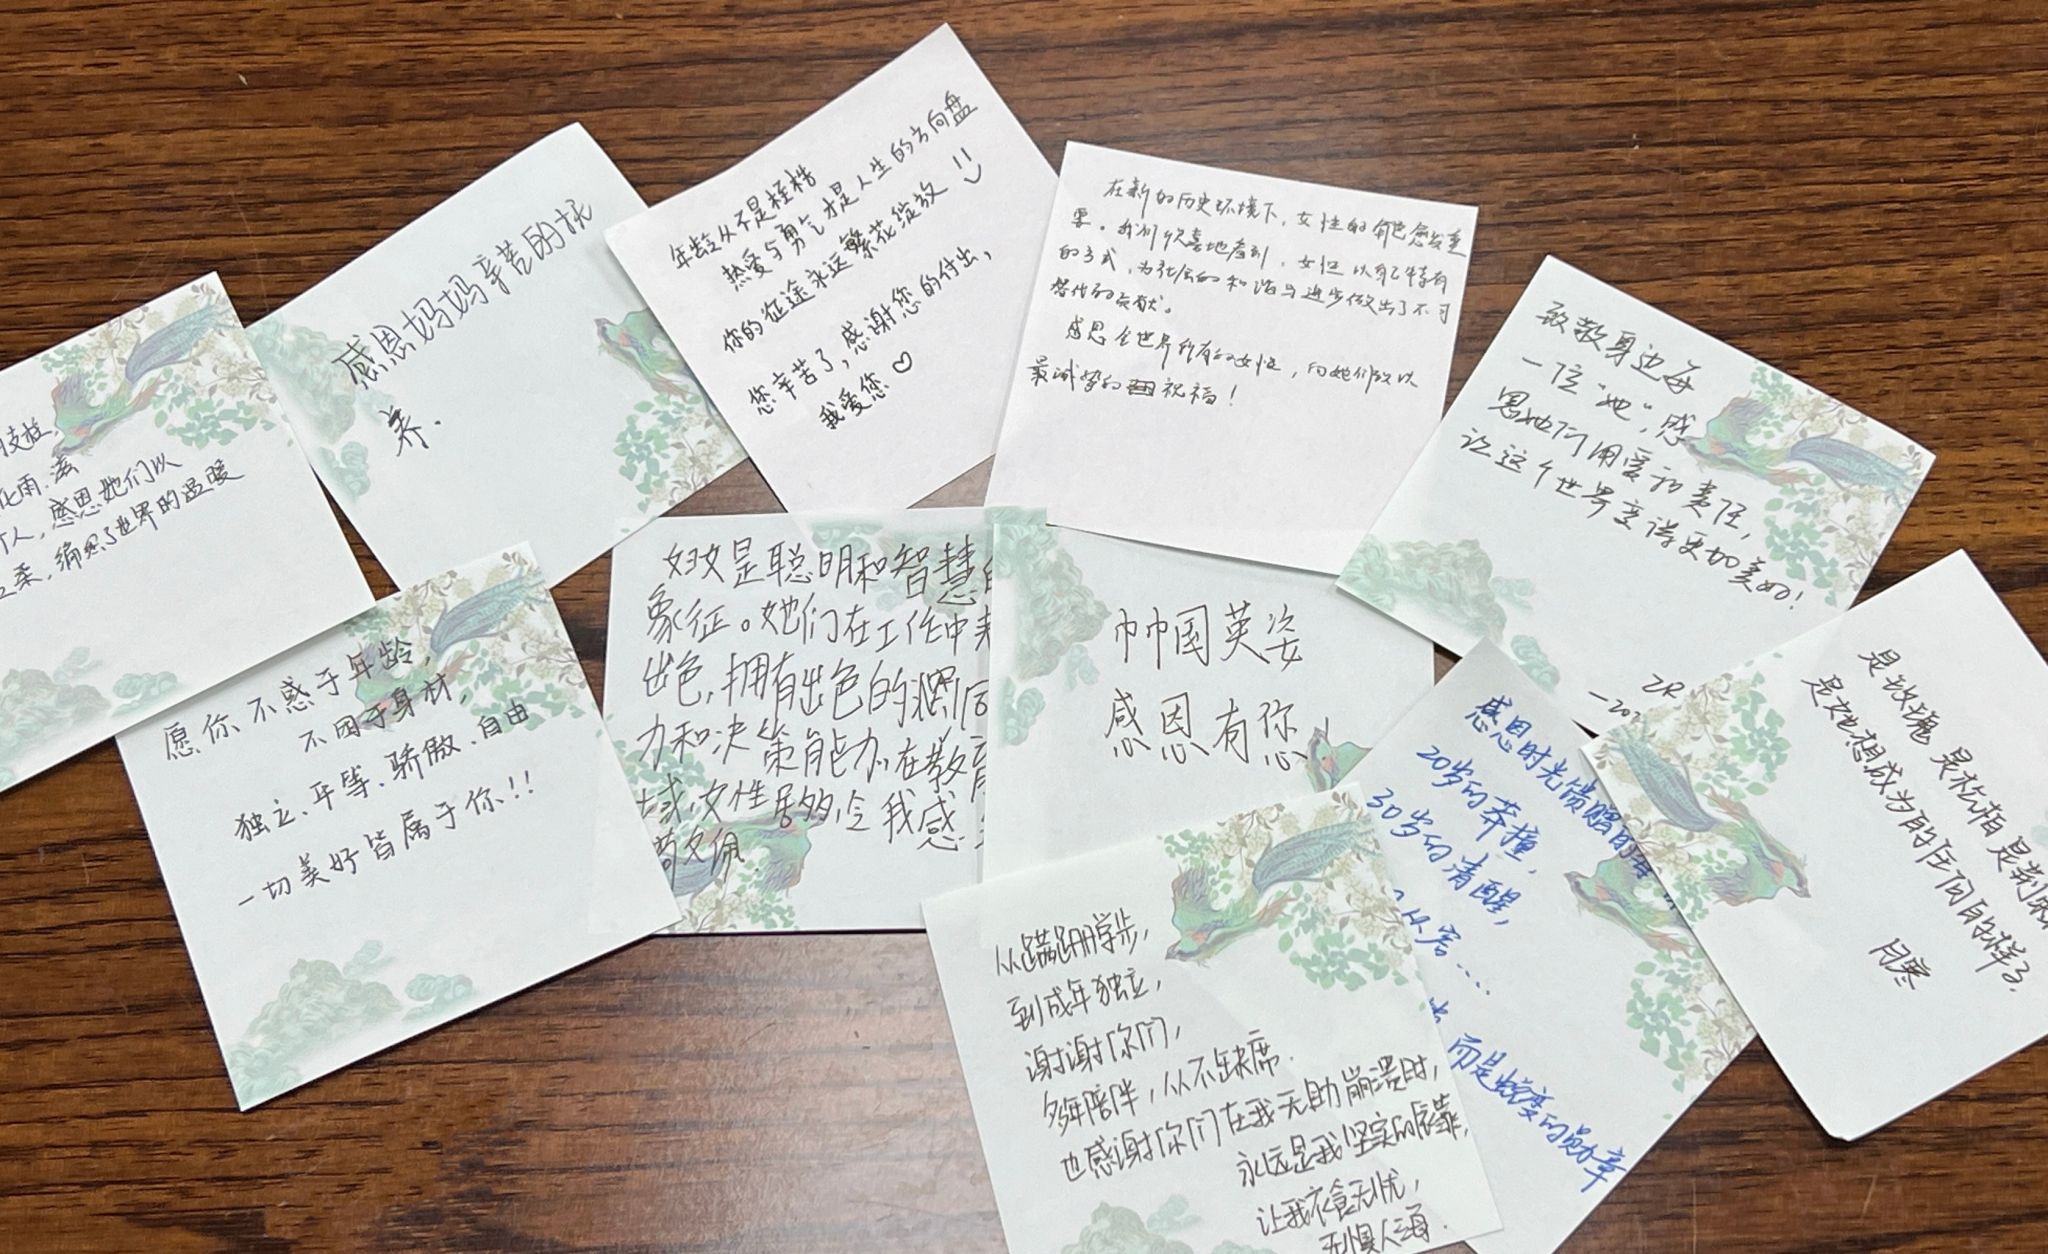 支柱,
化雨、滋
人,感恩她们以
柔,编织了世界的温暖
感恩妈妈辛苦的抚
养.
年龄从不是桎梏
热爱与勇气才是人生的方向盘
你的征途永远繁花绽放
您辛苦了,感谢您的付出,
我爱您♡
在新的历史环境下,女性的角色愈发重
要。我们欣喜地看到,女性以自己特有
的方式,为社会的和谐与进步做出了不可
替代的贡献。
感恩全世界所有的女性,向她们致以
最诚挚的祝福!
致敬身边每
一位“她”,感
恩她们用爱和责任,
让这个世界变得更加美好!
愿你不惑于年龄,
不困于身材,
独立、平等、骄傲、自由
一切美好皆属于你!!
妇女是聪明和智慧的
象征。她们在工作中表
出色,拥有出色的洞
力和决策能力,在教育
域,女性居多,令我感
巾帼英姿
感恩有您
是玫瑰 是松柏 是荆棘
是她想成为的任何的样子.
月寒
感恩时光馈赠的
20岁的莽撞,
30岁的清醒,
而是蜕变的勋章
从蹒跚学步,
到成年独立,
谢谢你们,
多年陪伴,从不缺席.
也感谢你们在我无助崩溃时,
永远是我坚实的依靠,
让我衣食无忧,
无惧人海.